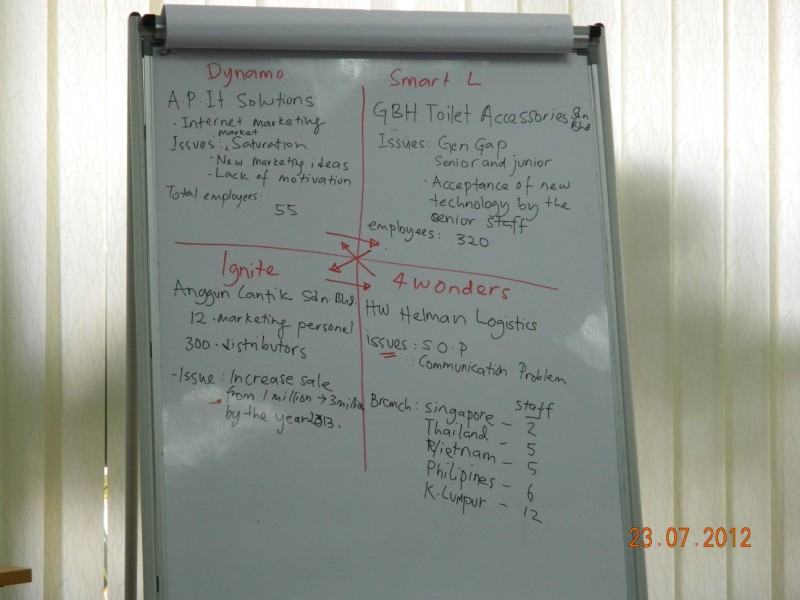 Dynamo
A.P. It Solutions
- Internet marketing
market
Issues: Saturation
- New marketing ideas
- Lack of motivation
Total employees:
55
Smart L
GBH Toilet Accessories Sdn Bhd
Issues: Gen Gap
Senior and junior
- Acceptance of new
technology by the
senior staff
employees: 320
Ignite
Anggun Cantik Sdn. Bhd.
12 - marketing personal
300 - distributors
- Issue: Increase sale
from 1 million → 3 million
by the year 2013.
4 wonders
HW Helman Logistics
issues: S.O.P
Communication Problem
Staff
Branch: Singapore - 2
Thailand - 5
Vietnam - 5
Philipines - 6
K. Lumpur - 12
23.07.2012